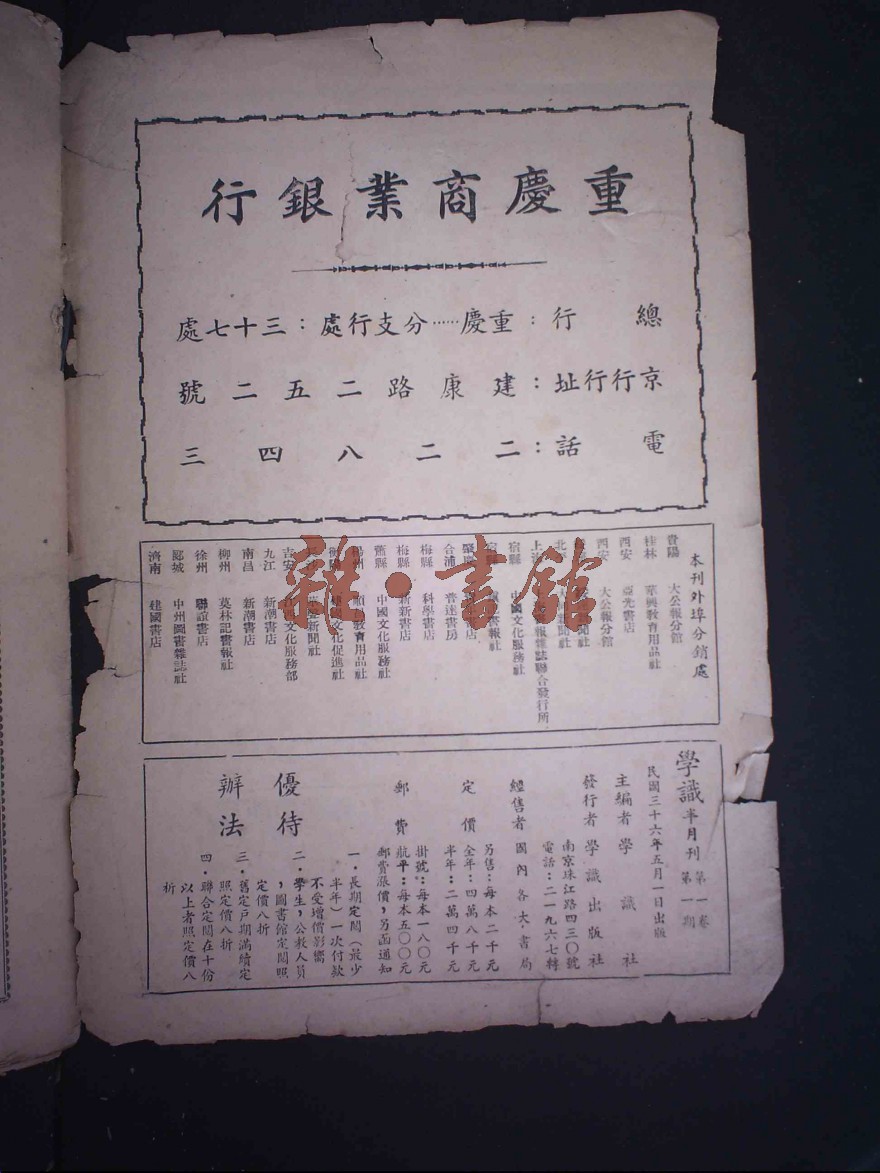 重慶商業銀行
總行：重慶……分支行處：三十七處
京行行址：建康路二五二號
電話：二二八四三
本刊外埠分銷處
貴陽 大公報分館
桂林 革興教育用品社
西安 亞光書店
西安 大公報分館
聞社
北 聞社
上海 書報雜誌聯合發行所
宿縣 中國文化服務社
宿縣 書報社
書店
合浦 普迷書房
梅縣 科學書店
梅縣 新新書店
蕭縣 中國文化服務社
教育用品社
文化促進社
新聞社
吉安 江西文化服務部
九江 新潮書店
南昌 新潮書店
柳州 莫林記書報社
徐州 聯誼書店
郾城 中州圖書雜誌社
濟南 建國書店
學識 半月刊 第一卷 第一期
民國三十六年五月一日出版
主編者 學識社
發行者 學識出版社
南京珠江路四三〇號
電話：二一九六七轉
經售者 國內各大書局
定價
另售：每本二千元
全年：四萬八千元
半年：二萬四千元
郵費
掛號：每本一八〇元
航平：每本五〇〇元
郵費漲價，另函通知
優待辦法
一．長期定閱（最少
半年）一次付款
不受增價影響
二．學生，公教人員
，圖書館定閱照
定價八折
三．舊定戶期滿續定
照定價八折
四．聯合定閱在十份
以上者照定價八
折
雜·書館